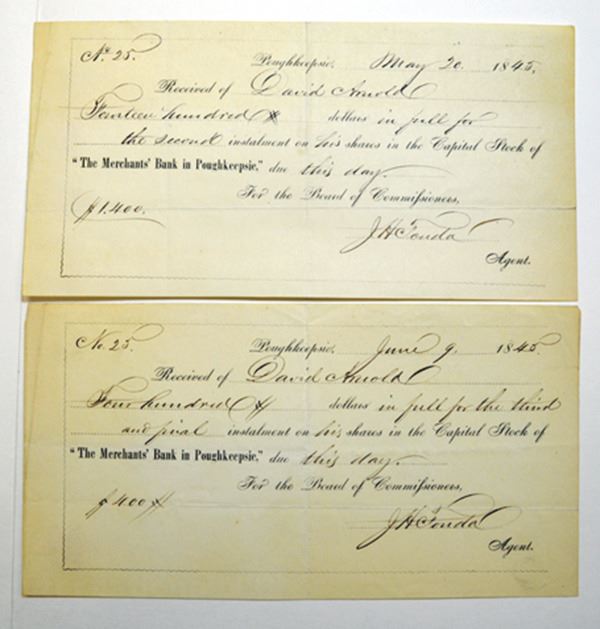 No. 25. Poughkeepsie, May 20 1845.
Received of David Arnold
Fourteen hundred dollars in full for
the second instalment on his shares in the Capital Stock of
"The Merchants' Bank in Poughkeepsie," due this day.
For the Board of Commissioners,
$1.400.
J H Fonda
Agent.
No. 25. Poughkeepsie, June 9. 1845.
Received of David Arnold
Four hundred dollars in full for the third
and final instalment on his shares in the Capital Stock of
"The Merchants' Bank in Poughkeepsie," due this day.
For the Board of Commissioners,
$400
J H Fonda
Agent.